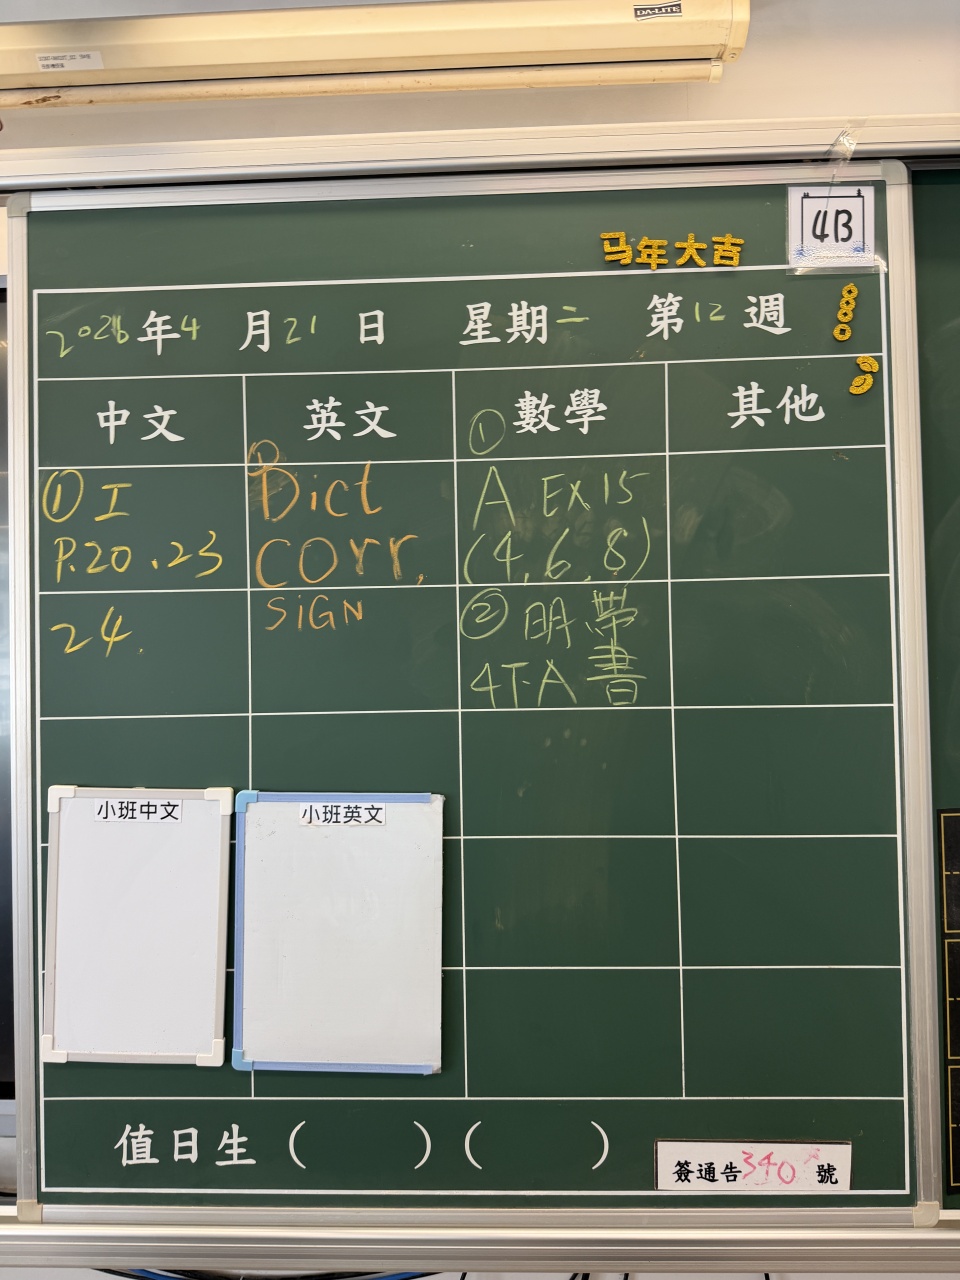 DA-LITE
4B
马年大吉
2026年4月21日 星期二 第12週
中文 英文 數學 其他
① I
P.20, 23
24.
①
Dict
corr.
SIGN
①
A EX15
(4, 6, 8)
② 明帶
4T-A 書
小班中文
小班英文
值日生 ( ) ( )
簽通告340號